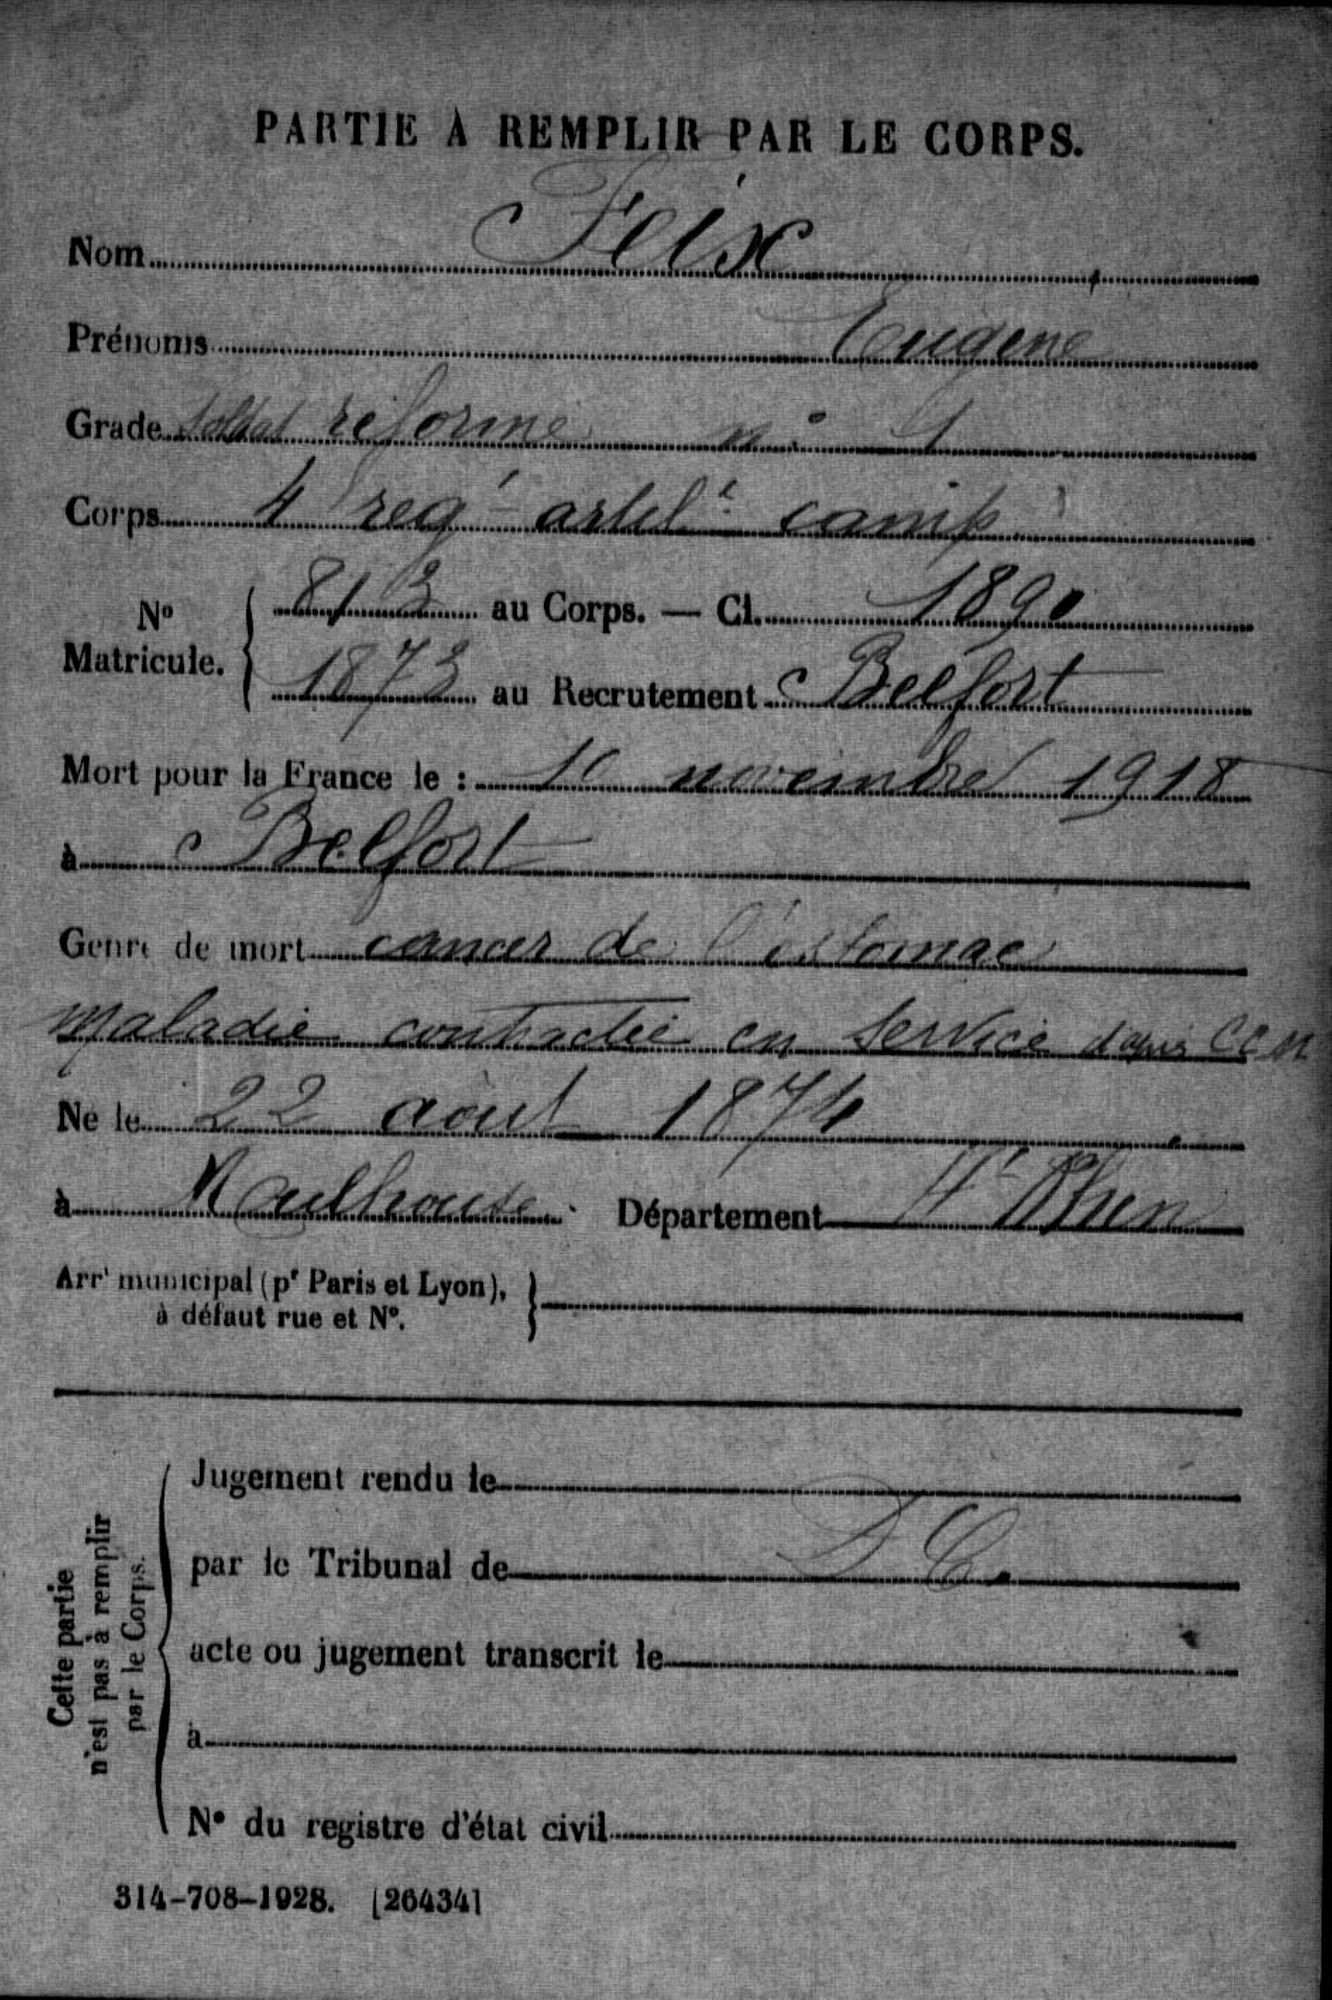 PARTIE À REMPLIR PAR LE CORPS.
Nom Feix
Prénoms Eugene
Grade soldat réformé n° 1
Corps 4 reg^t artil^ie camp
N° Matricule. 813 au Corps. — Cl. 1890
1873 au Recrutement Belfort
Mort pour la France le : 10 novembre 1918
à Belfort
Genre de mort cancer de l'estomac
maladie contractée en service d'après CCM
Né le 22 août 1874
à Mulhouse. Département Ht Rhin
Arr^t municipal (p^r Paris et Lyon),
à défaut rue et N°.
Cette partie n'est pas à remplir par le Corps.
Jugement rendu le
par le Tribunal de D C.
acte ou jugement transcrit le
à
N° du registre d'état civil
314-708-1928. [26434]